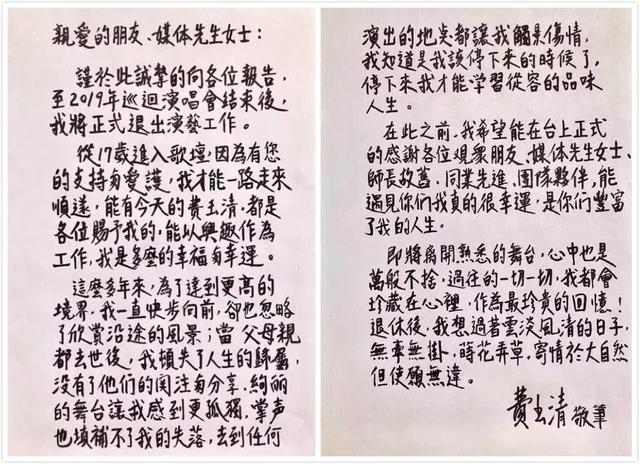 親愛的朋友、媒体先生女士：
謹於此誠摯的向各位報告，
至2019年巡迴演唱會結束後，
我將正式退出演藝工作。
從17歲進入歌壇，因為有您
的支持与愛護，我才能一路走來
順遂，能有今天的費玉清，都是
各位賜予我的，能以興趣作為
工作，我是多麼的幸福与幸運。
這麼多年來，為了達到更高的
境界，我一直快步向前，卻也忽略
了欣賞沿途的風景；當父母親
都去世後，我頓失了人生的歸屬，
没有了他們的関注与分享，絢麗
的舞台讓我感到更孤獨，掌声
也填補不了我的失落，去到任何
演出的地点都讓我觸景傷情，
我知道是我該停下來的時候了，
停下來我才能学習從容的品味
人生。
在此之前，我希望能在台上正式
的感謝各位覌衆朋友、媒体先生女士、
師長故舊、同業先進、團隊夥伴，能
遇見你們我真的很幸運，是你們豐富
了我的人生。
即將离開熟悉的舞台，心中也是
萬般不捨，過往的一切一切，我都會
珍藏在心裡，作為最珍貴的回憶！
退休後，我想過著雲淡風清的日子，
無牽無掛，蒔花弄草，寄情於大自然
但使願無違。
費玉清 敬筆